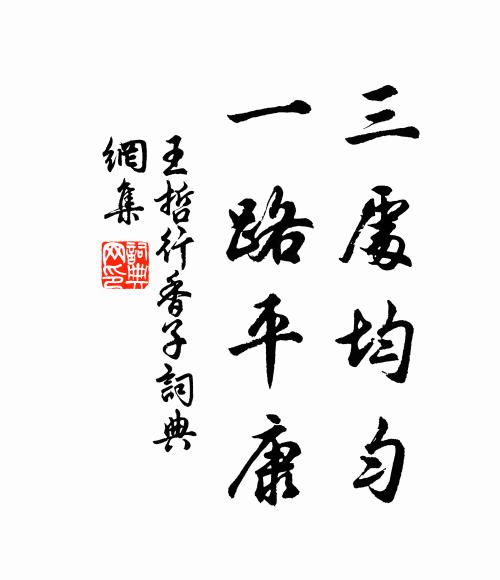 三處均勻
一路平康
王哲行香子詞典
網集
詞典
网印